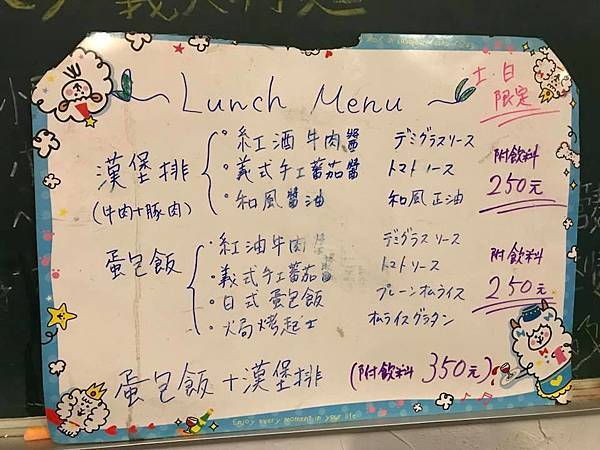 Lunch Menu
土日
限定
漢堡排
(牛肉+豚肉)
・紅酒牛肉醬 デミグラスソース
・義式手工蕃茄醬 トマトソース
・和風醬油 和風正油
附飲料
250元
蛋包飯
・紅油牛肉 デミグラスソース
・義式手工蕃茄醬 トマトソース
・日式蛋包飯 プレーンオムライス
・火局烤起士 オムライスグラタン
附飲料
250元
蛋包飯+漢堡排 (附飲料 350元)
Enjoy every moment in your life